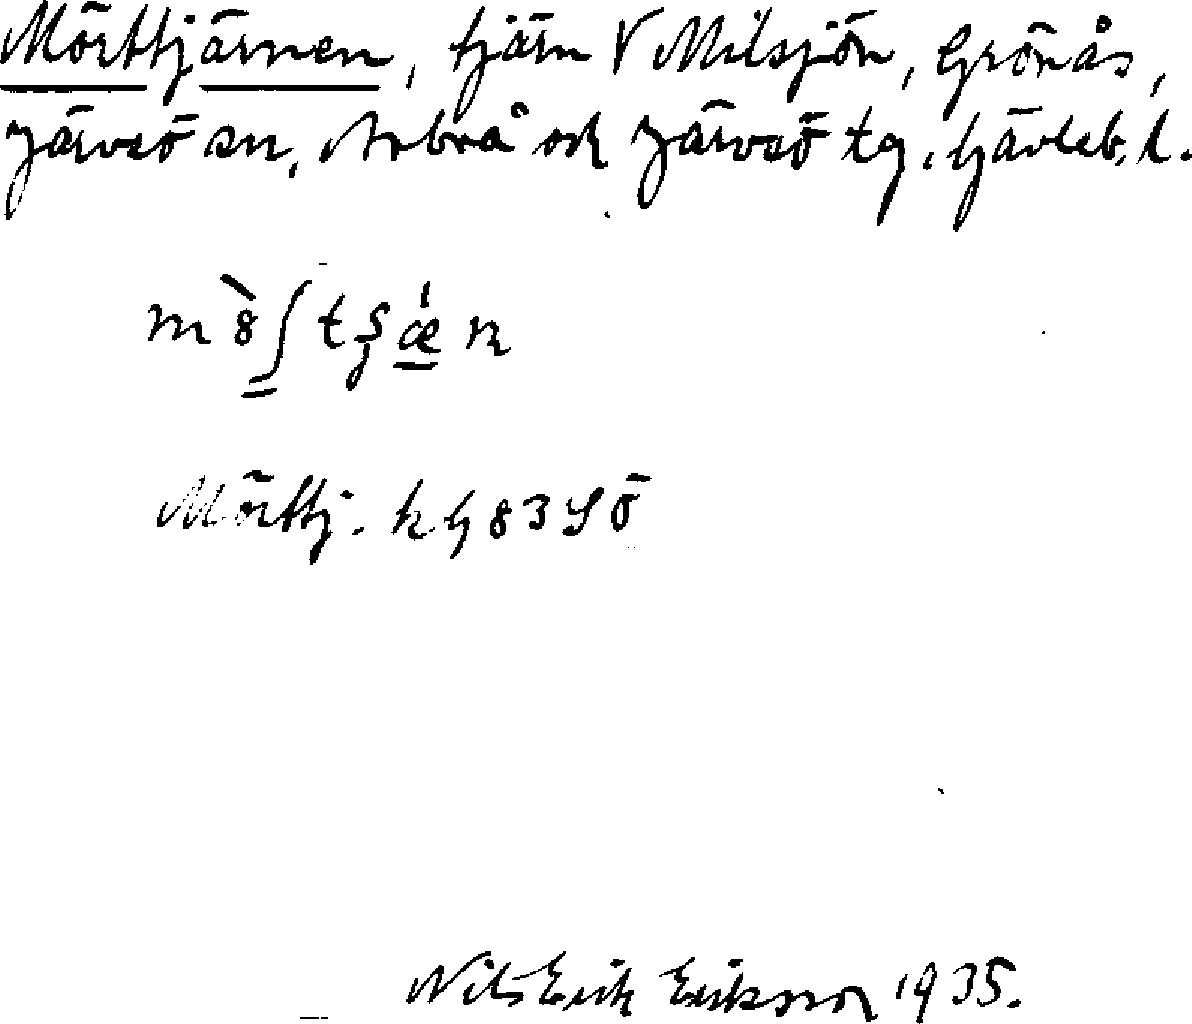 Mörttjärnen, tjärn V Milsjön, Grönås,
Järvsö sn, Arbrå och Järvsö tg, Gävleb. l.
Mörttj. k G 83 SÖ
Nils Erik Eriksson 1935.